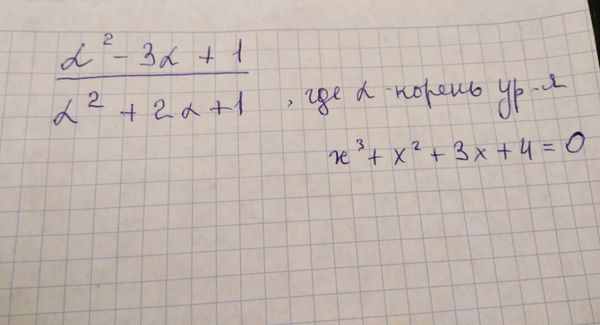 α² - 3α + 1
α² + 2α + 1 , где α - корень ур-я
x³ + x² + 3x + 4 = 0